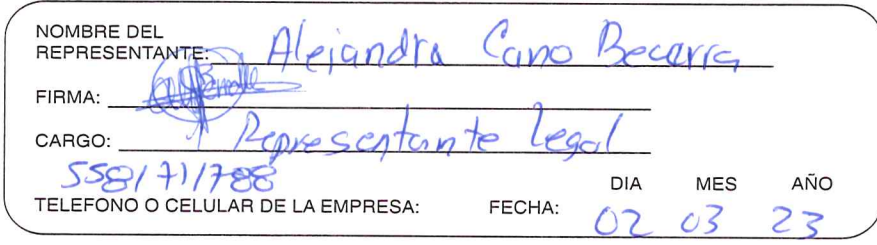 NOMBRE DEL
REPRESENTANTE: Alejandra Cano Becerra
FIRMA:
CARGO: Representante Legal
5581711788
DIA MES AÑO
TELEFONO O CELULAR DE LA EMPRESA: FECHA: 02 03 23